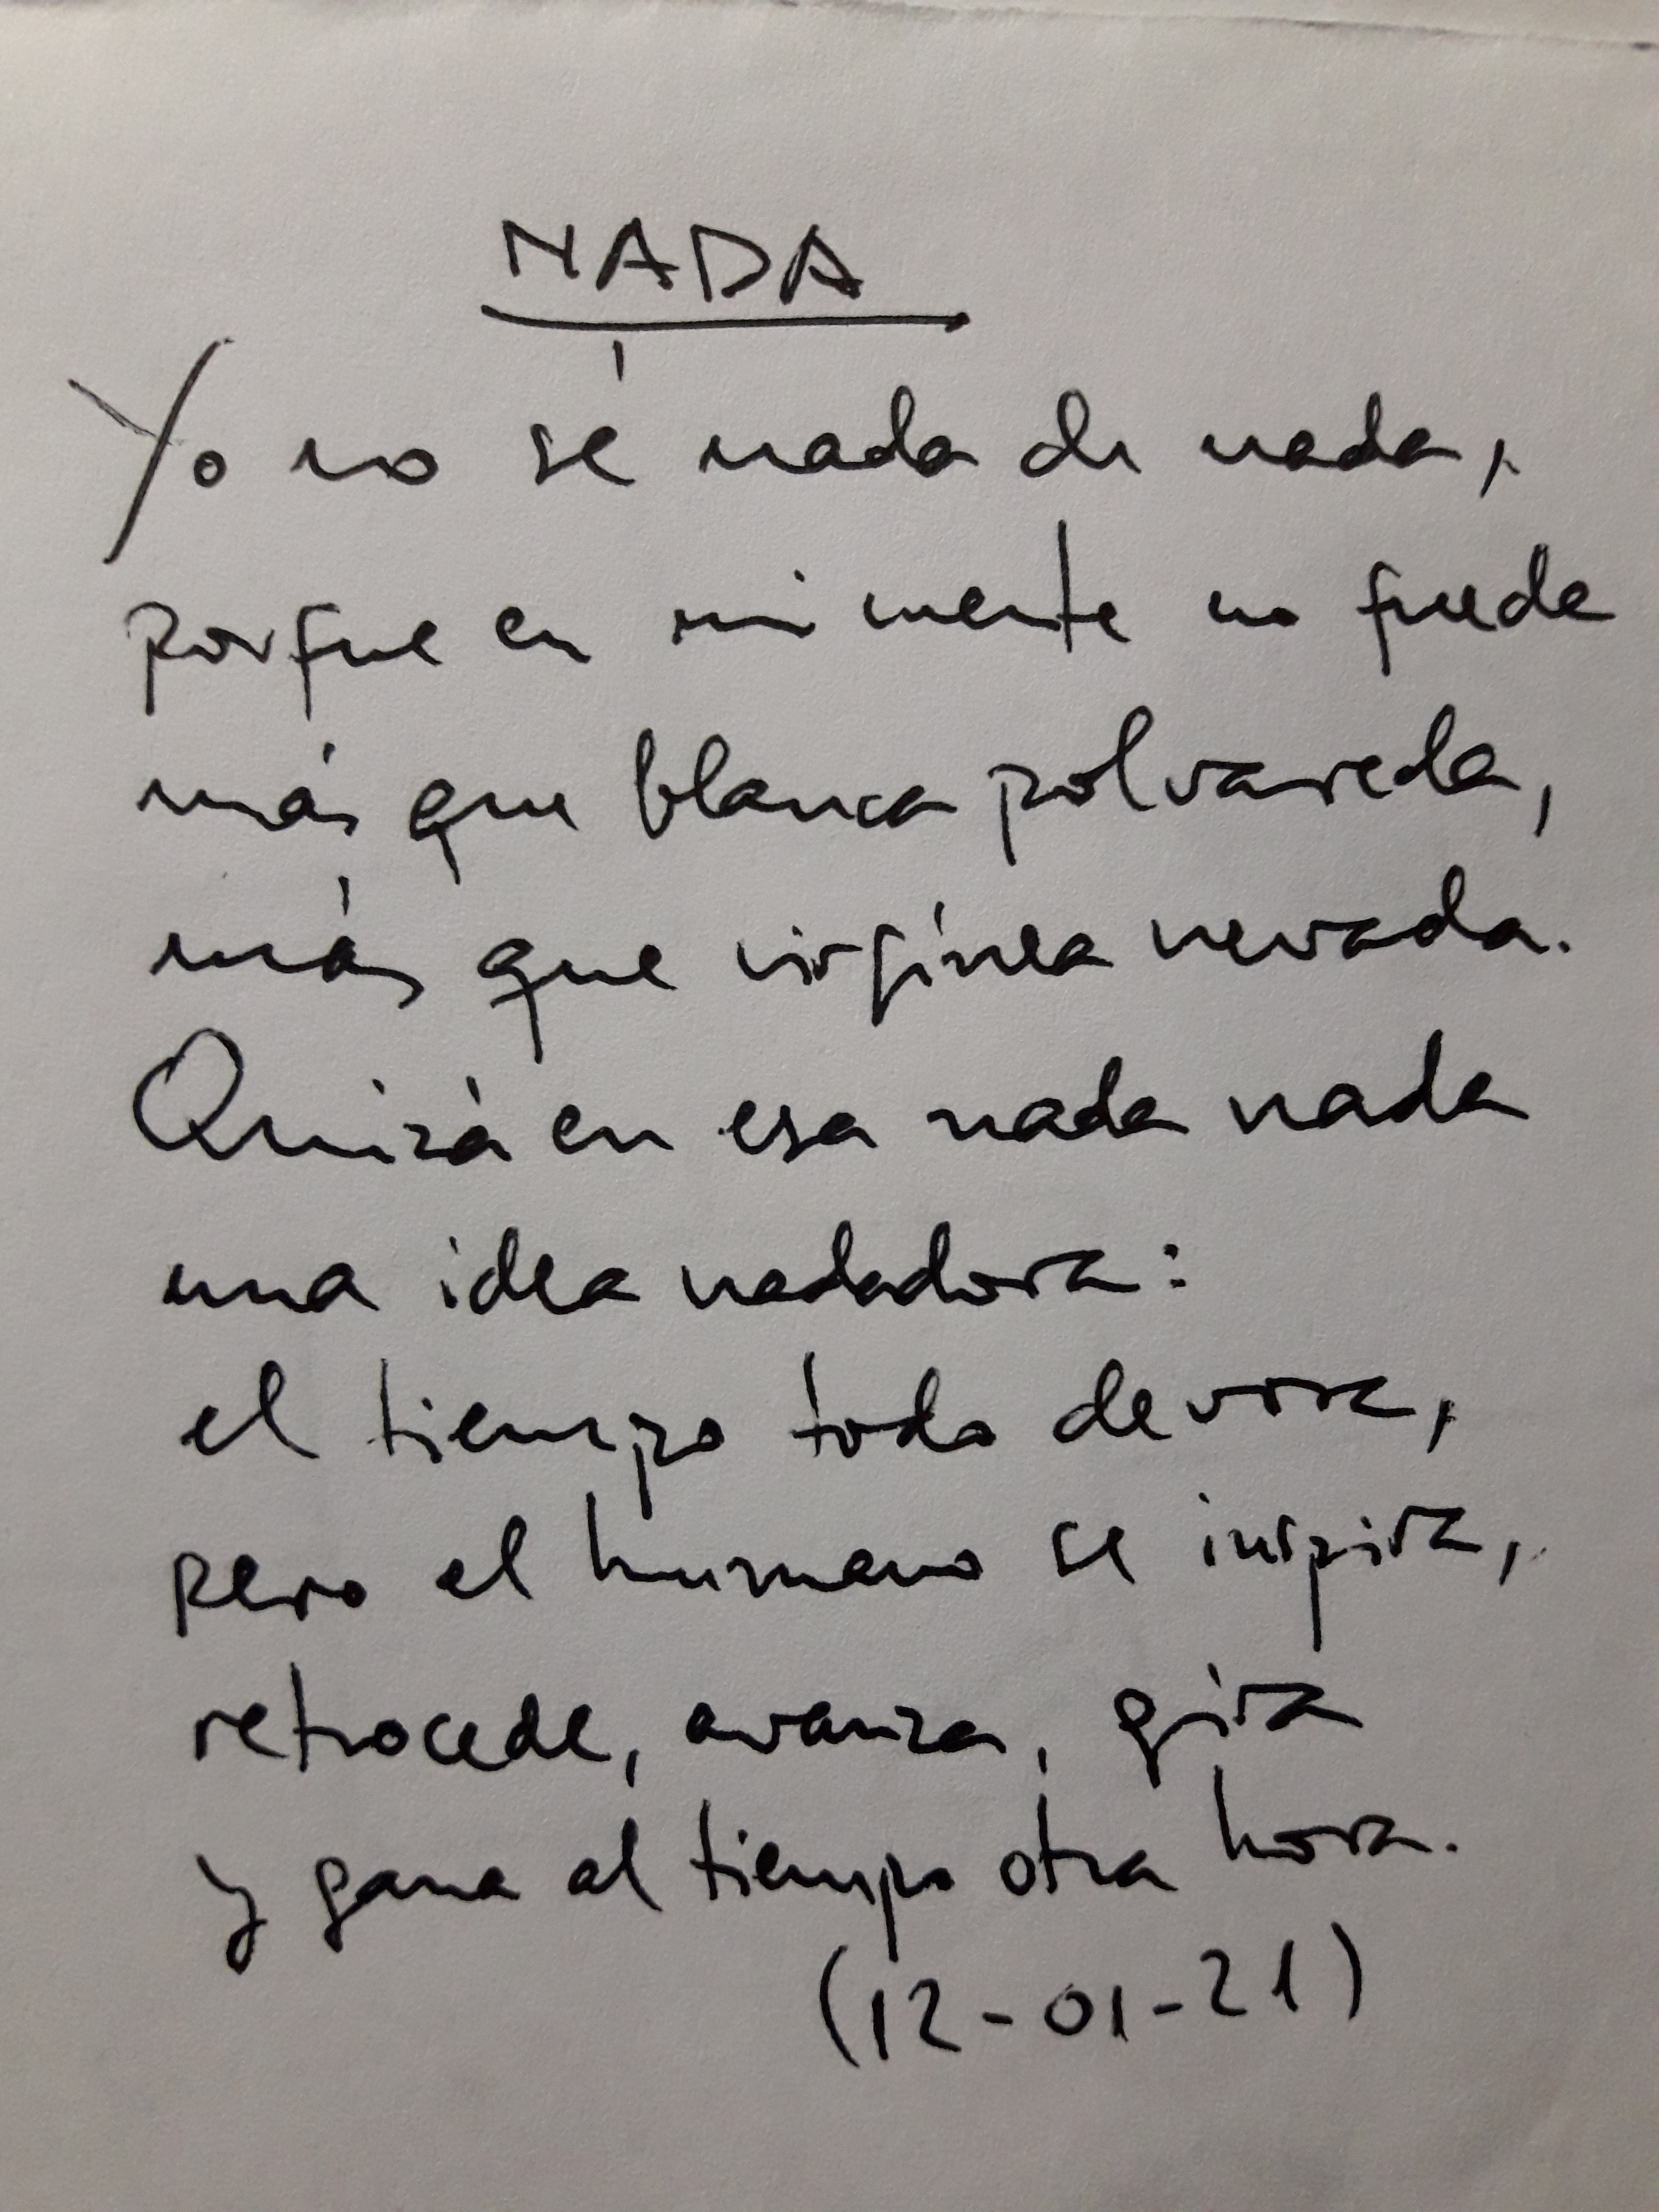 NADA
Yo no sé nada de nada,
porque en mi mente no queda
más que blanca polvareda,
más que virgínea nevada.
Quizá en esa nada nada
una idea nadadora:
el tiempo todo devora,
pero el humano se inspira,
retrocede, avanza, gira
y gana al tiempo otra hora.
(12-01-21)